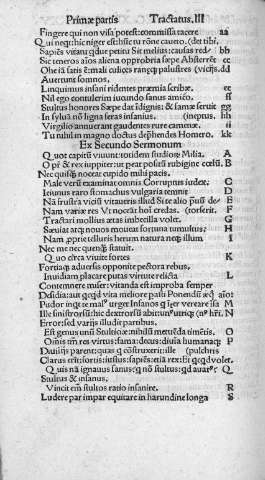 Primæ partis Tractatus. III
Fingere qui non visa potest: commissa tacere aa
Qui nequit: hic niger est: hūc tu rōne caveto.
Sapiēs vitatu qđue petitu Sit melius: causas red bb
Sic teneros aīos aliena opprobria sæpe Absterrēt cc
Ohe iā satis ē: mali culices ranæq; palustres dd
Avertunt somnos,
Linquimus insani ridentes præmia scribæ ee
Nil ego contulerim iucundo sanus amico. ff
Stultus honores Sæpe dat īdignis: & famæ seruit gg
In syluā nō ligna feras insanius. (ineptus. hh
Virgilio annuerant gaudentes rure camœnæ ii
Tu nihil in magno doctus dephendes Homero. kk
Ex Secundo Sermonum
Quot capitū viuunt: totidem studioꝝ Milia. A
O pē & rex iuppiter: ut peat positū rubigine B
Nec quisq̄ noceat cupido mihi pacis.
Male verū examinat omnis Corruptus iudex. C
Ieiunus raro stomachus vulgaria temnit D
Nā frustra vitiū vitaveris illud Si te alio E
Nam variæ res Vt noceāt hoī credas. F
Tractari mollius ætas imbecilla volet. G
Sæuiat atq; nouos moueat fortuna tumultus; H
Nam ppriæ telluris herum natura neq; illum I
Nec me nec quenq̄ statuit.
Quo circa viuite fortes K
Fortiaq; adversis opponite pectora rebus,
Inuidiam placare putas virtute relicta L
Contemnere miser: vitanda est improba semper
Desidia: aut quicqđ vita meliore
Pudor inqt te malꝰ urget Insanos q īter vereare M
Ille sinistrorsū: hic dextrorsū abit: N
Error: sed varijs illudit partibus.
Est genus unū Stulticiæ: nihilū metuēda timētis. O
Omnis em̄ res virtus: fama: decus: diuīa humanaq; P
Divitijs parent: quas q construxerit: ille (pulchris
Clarus erit: fortis: iustus: sapiēs: etiā rex: Et qcqđ volet.
Quis nā igit̄ sanus: q nō stultus: qd auarꝰ: Q
Stultus & insanus.
Vincit em̄ stultos ratio insanire. R
Ludere par impar equitare in harundine longa S